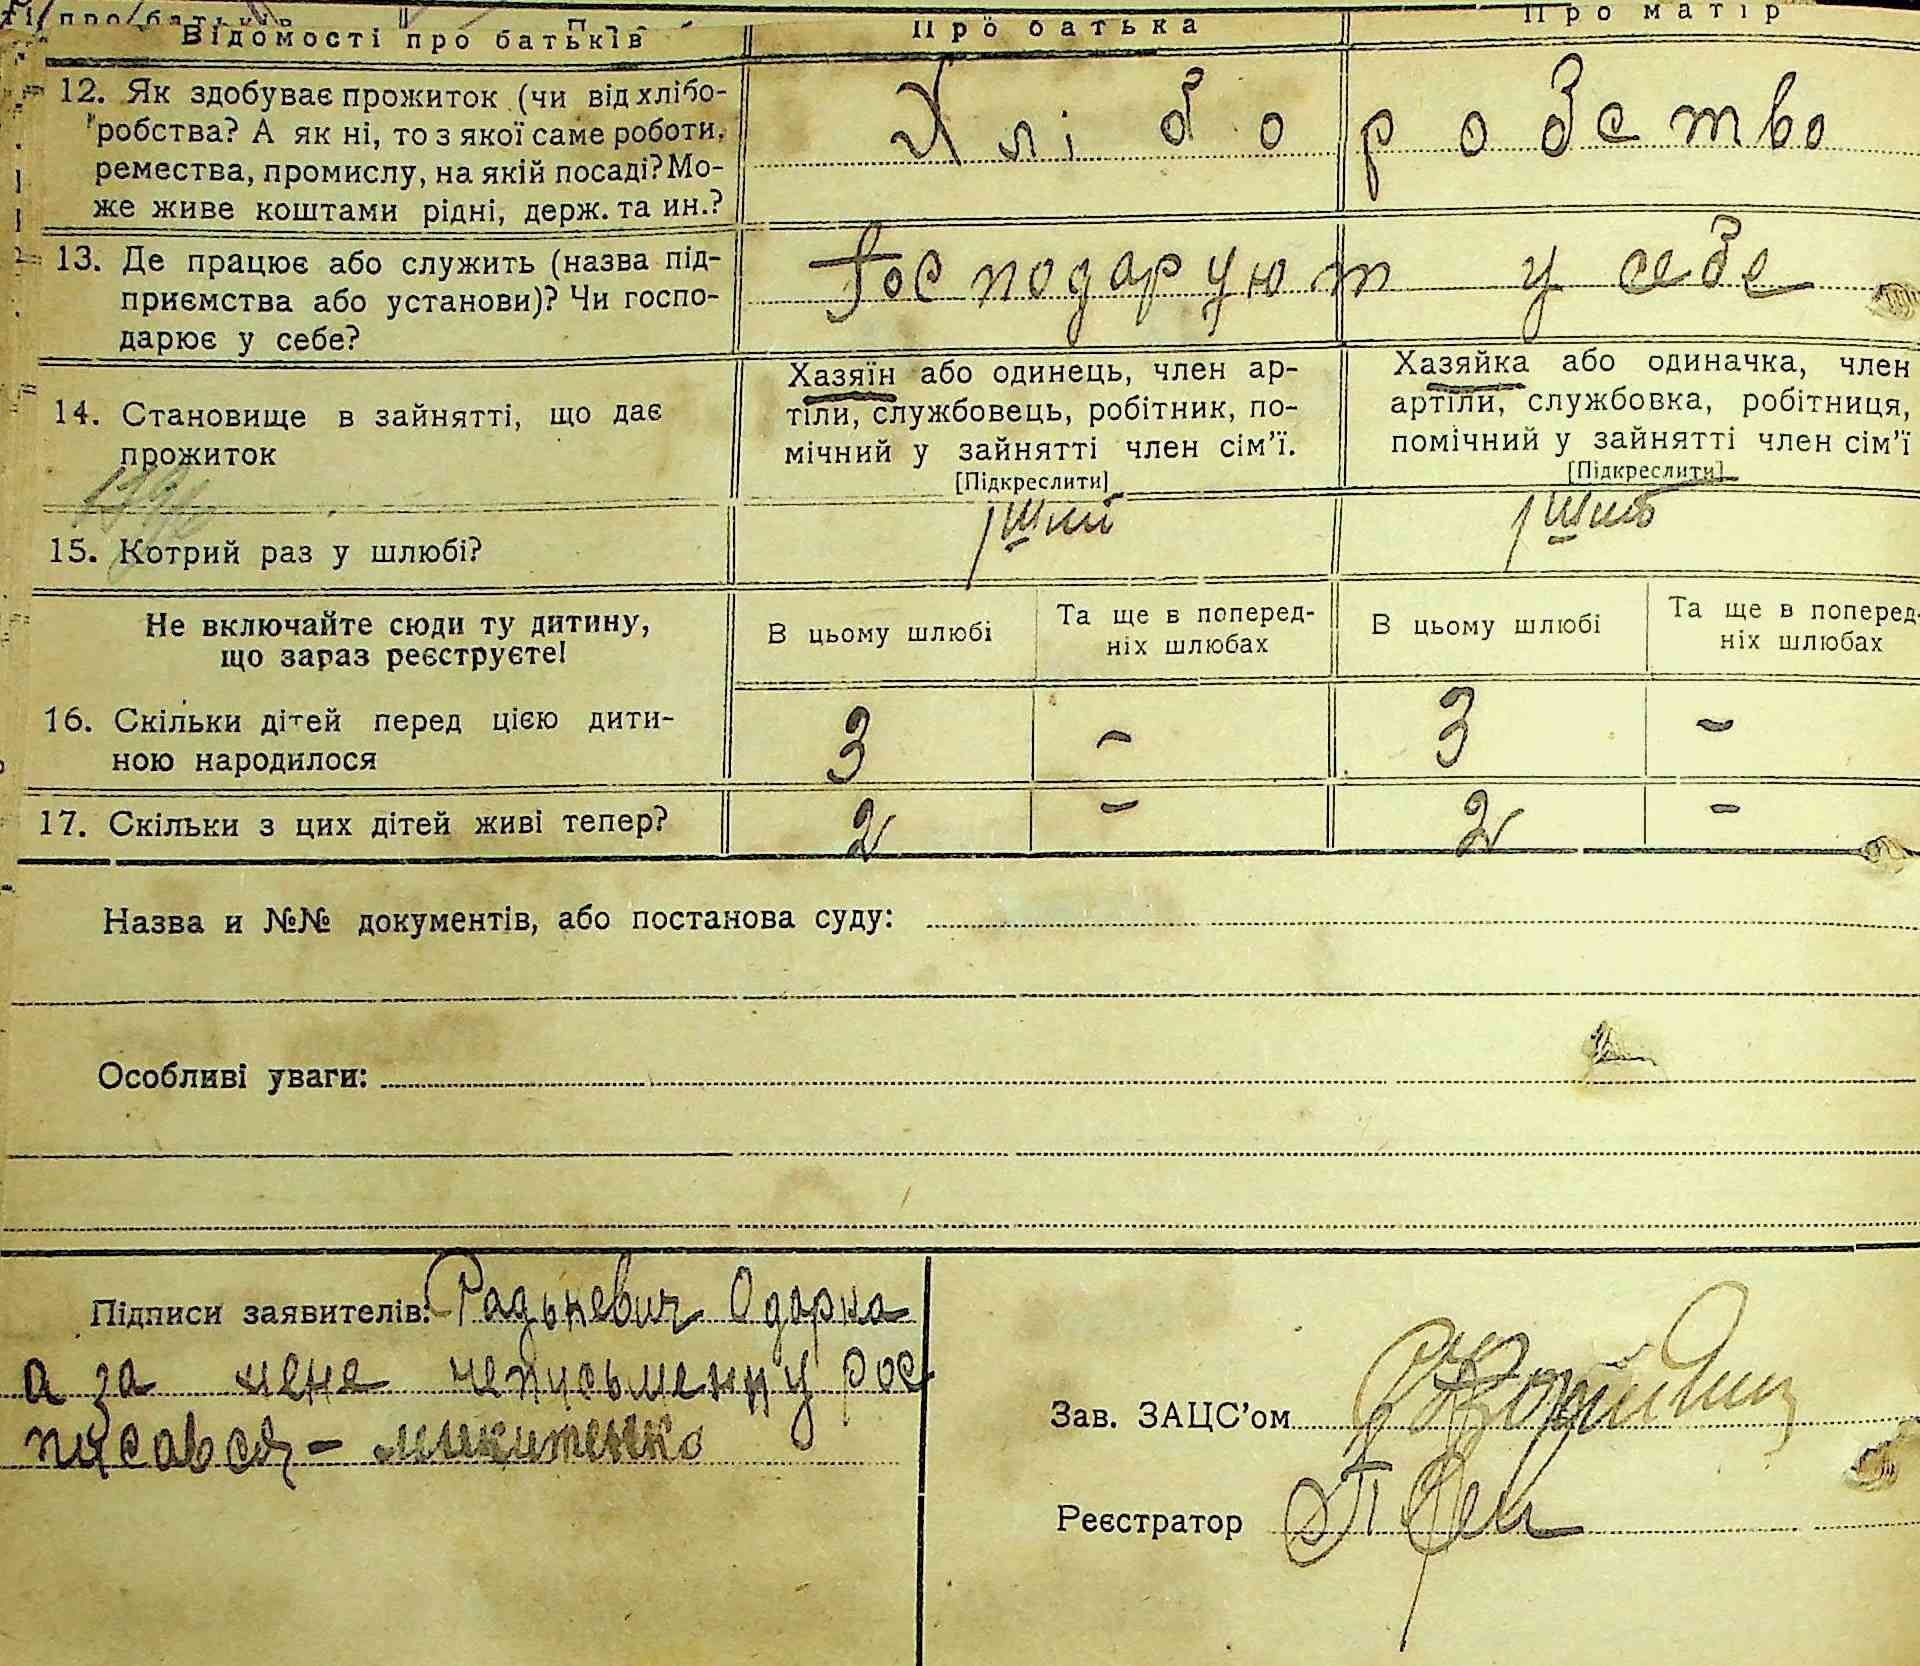 Відомості про батьків Про батька Про матір
12. Як здобуває прожиток (чи від хлібо-
робства? А як ні, то з якої саме роботи,
ремества, промислу, на якій посаді? Мо-
же живе коштами рідні, держ. та ин.?
Хліборобство
13. Де працює або служить (назва під-
приємства або установи)? Чи госпо-
дарює у себе?
Господарюют у себе
14. Становище в зайнятті, що дає
прожиток
Хазяїн або одинець, член ар-
тіли, службовець, робітник, по-
мічний у зайнятті член сім'ї.
[Підкреслити]
Хазяйка або одиначка, член
артіли, службовка, робітниця,
помічний у зайнятті член сім'ї
[Підкреслити]
15. Котрий раз у шлюбі?
Не включайте сюди ту дитину,
що зараз реєструєте!
В цьому шлюбі
Та ще в поперед-
ніх шлюбах
В цьому шлюбі
Та ще в поперед-
ніх шлюбах
16. Скільки дітей перед цією дити-
ною народилося
3 - 3 -
17. Скільки з цих дітей живі тепер? 2 - 2 -
Назва и №№ документів, або постанова суду:
Особливі уваги:
Підписи заявителів: Радькевич Одарка
а за мене неписьменну рос
писався - Микитенко
Зав. ЗАЦС'ом
Реєстратор